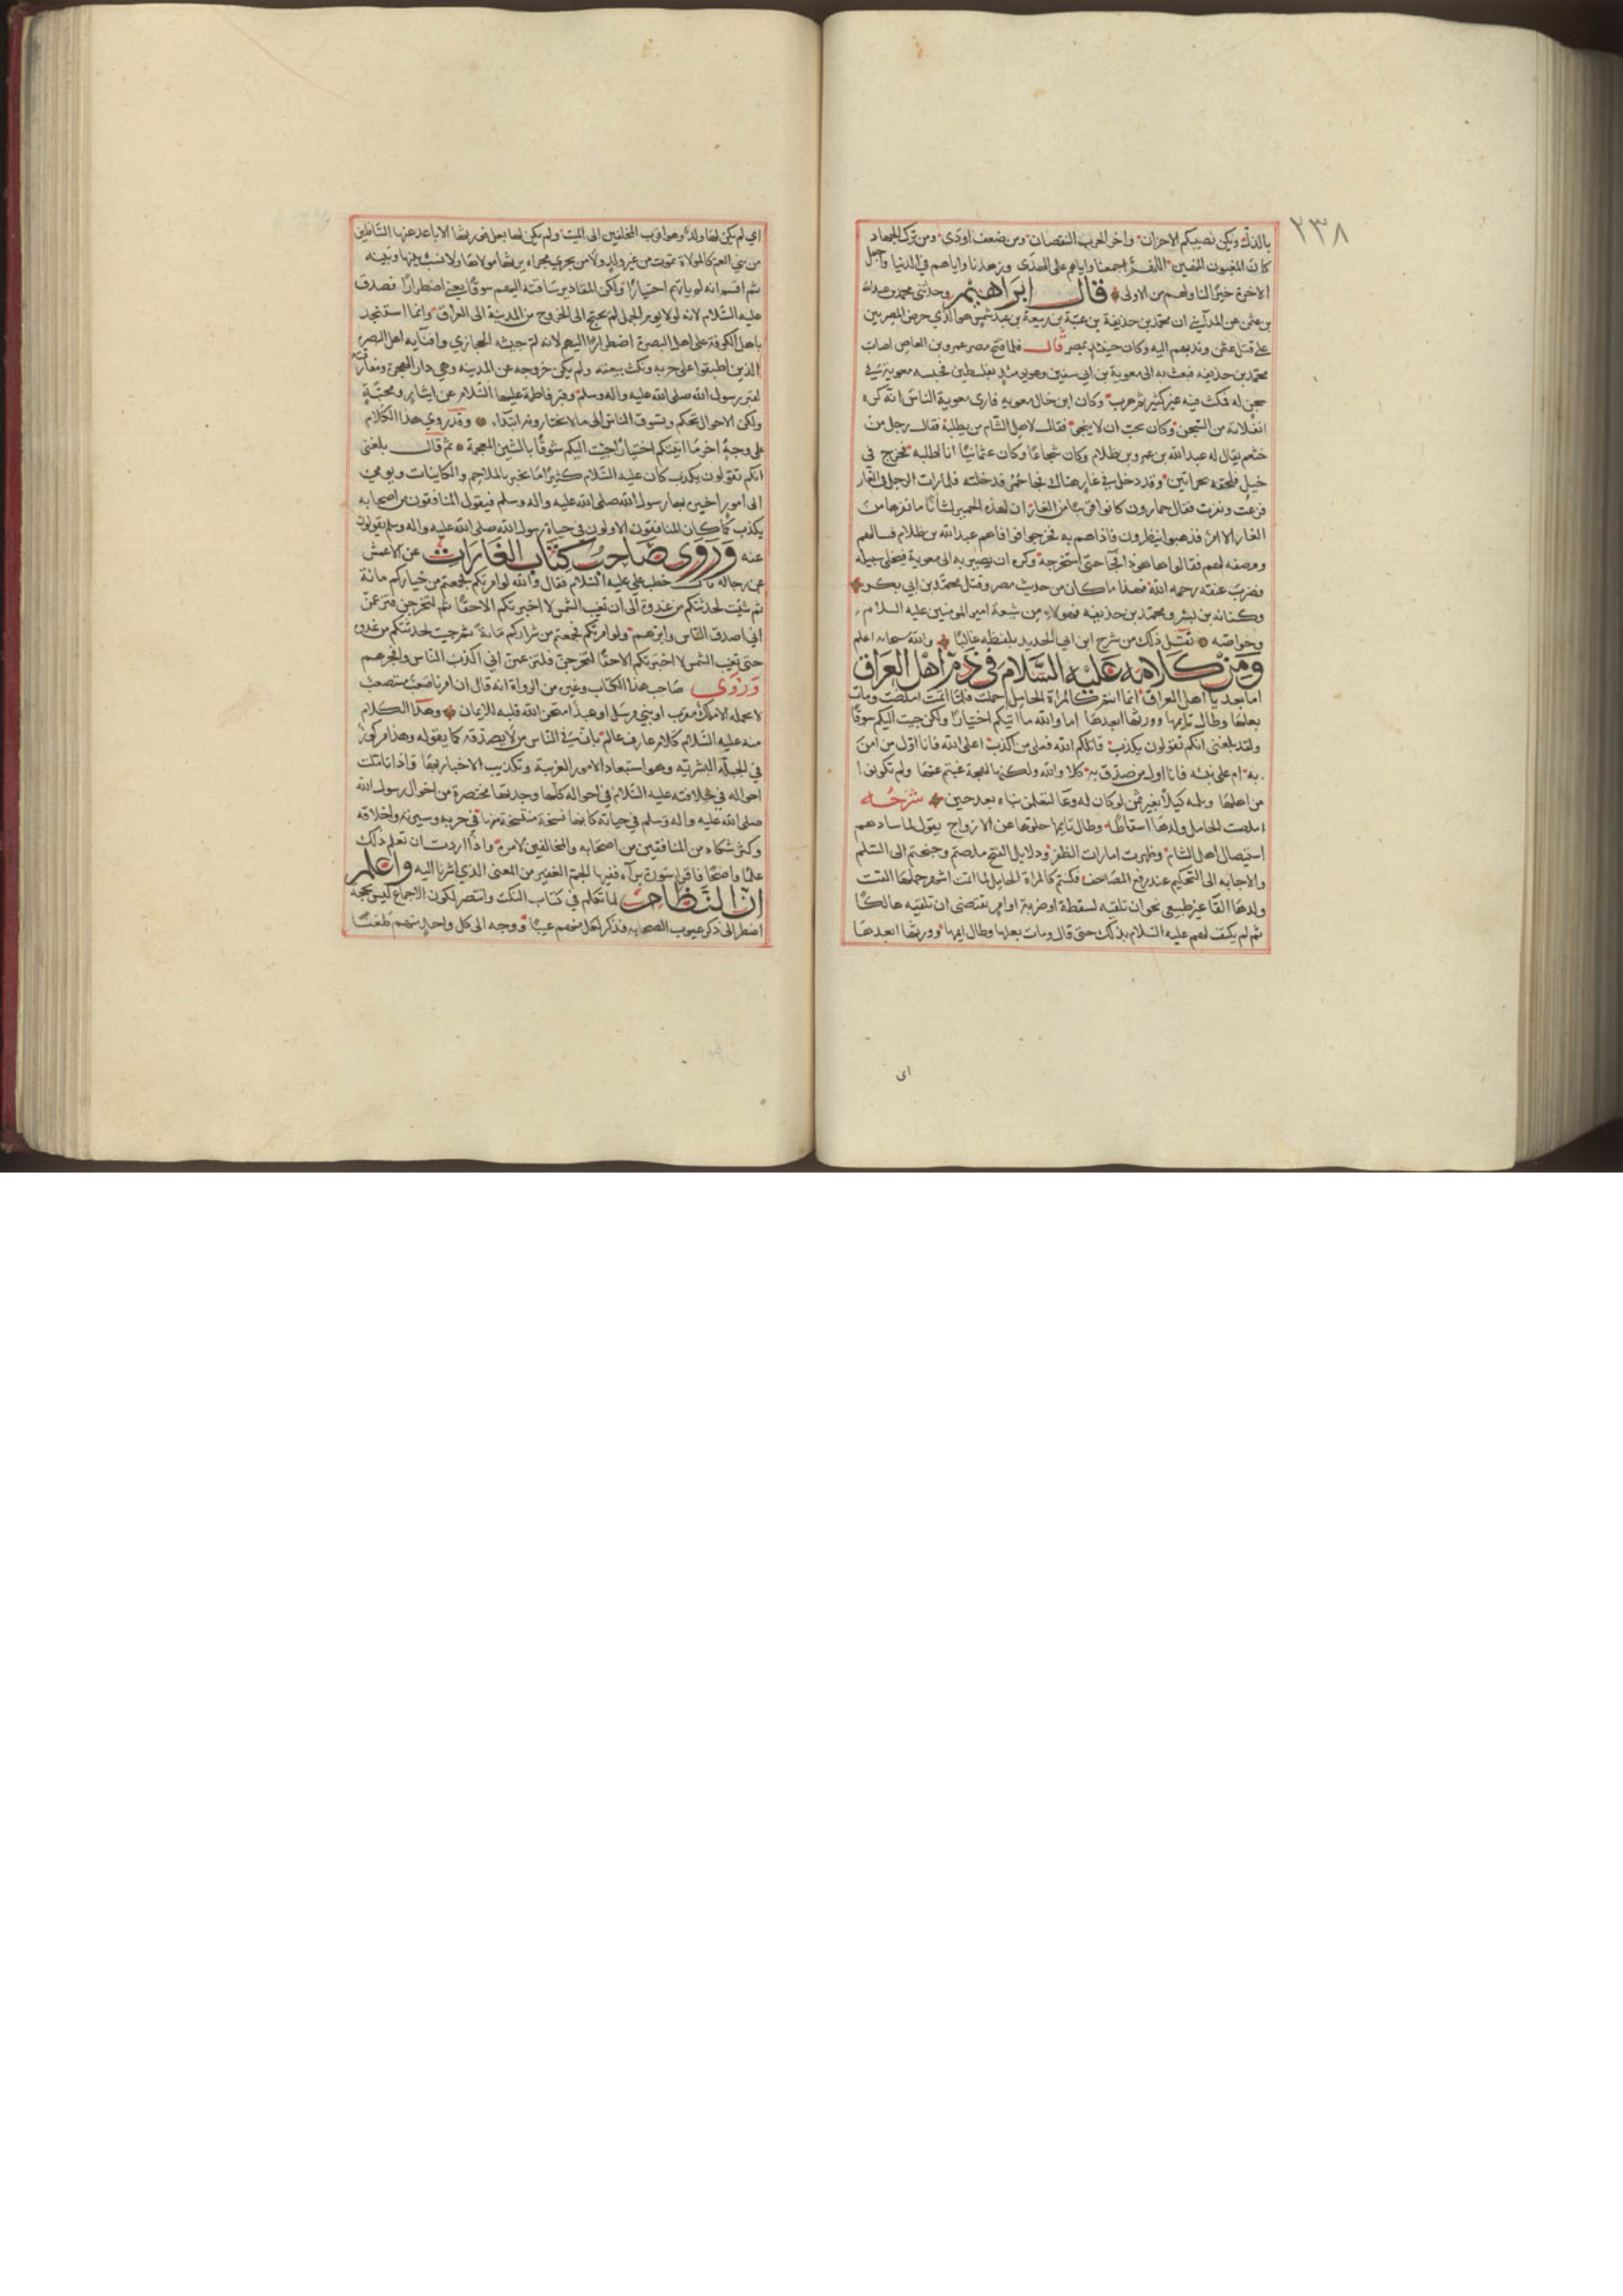 ٢٣٨
بالذل ويكن نصيبكم الاحزان واخو الحرب اليقظان ومن ضعف اودى ومن ترك الجهاد
كان المغبون المهين اللهم اجمعنا واياهم على الهدى وزهدنا واياهم في الدنيا واجعل
الاخرة خيرًا لنا ولهم من الاولى قال ابراهيم وحدثنى محمد بن عبدالله
بن عثمن عن المدايني ان محمد بن حذيفة بن عتبة بن ربيعة بن عبد شمس هو الذي حرض المصريين
على قتل عثمن وندبهم اليه وكان حينئذ بمصر قال فلما فتح مصر عمرو بن العاص اصاب
محمد بن حذيفه فبعث به الى معوية بن ابي سفين وهو يومئذ بفلسطين فحبسه معوية في
سجن له فمكث فيه غير كثير ثم هرب وكان ابن خال معويه فارى معوية الناس انه كره
انفلاته من السجن وكان يحب ان لا ينجى فقال لاهل الشام من يطلبه فقال رجل من
خثعم يقال له عبد الله بن عمرو بن ظلام وكان شجاعًا وكان عثمانيًا انا اطلبه فخرج في
خيل فلحقه بحوارين وقد دخل في غار هناك فجا حمر فدخلته فلما رات الرجل في الغار
فزعت ونفرت فقال حمارون كانوا قريبًا من الغار ان لهذه الحمير لشانًا ما نفرها من
الغار الا امر فذهبوا ينظرون فاذاهم به فخرجوا فوافاهم عبد الله بن ظلام فسالهم
ووصفه لهم فقالوا ها هوذا فجا حتى استخرجه وكره ان يصير به الى معوية فيخلى سبيله
فضرب عنقه رحمه الله فهذا ما كان من حديث مصر وقتل محمد بن ابي بكر
وكنانه بن بشر ومحمد بن حذيفه فهولاء من شيعة امير المومنين عليه السلام
وخواصه نقل ذلك من شرح ابن ابي الحديد بلفظه غالبًا والله سبحانه اعلم
ومن كلامه عليه السلام في ذم اهل العراق
اما بعد يا اهل العراق انما انتم كالمراة الحامل حملت فلما اتمت املصت ومات
بعلها وطال تايمها وورثها ابعدها اما والله ما اتيتكم اختيارًا ولكن جيت اليكم سوقًا
ولقد بلغنى انكم تقولون يكذب قاتلكم الله فعلى من اكذب اعلى الله فانا اول من امن
به ام على نبيه فانا اول من صدق به كلا والله ولكنها لهجة غبتم عنها ولم تكونوا
من اهلها ويلمه كيلًا بغير ثمن لو كان له وعا لتعلمن نباه بعد حين شرحه
املصت الحامل ولدها اسقاطًا وطال تايمها خلوها عن الازواج يقول لما سادهم
استيصال اهل الشام وظهرت امارات الظفر ودلايل الفتح ملصتم وجنحتم الى السلم
والاجابه الى التحكيم عند رفع المصاحف فكنتم كالمراة الحامل لما اتمت اشهر حملها القت
ولدها القًا غير طبيعي نحو ان تلقيه لسقطة او ضربة او امر يقتضى ان تلقيه هالكًا
ثم لم يكتف لهم عليه السلام بذلك حتى قال ومات بعلها وطال ايمها وورثها ابعدها
اى
اي لم يكن لها ولد وهو اقرب المخلفين الى الميت ولم يكن لها بعل فورثها الاباعد عنها السافلين
من بني العم كالمولاة تموت من غير ولد ولا من يجري مجراه يرثها مولاها ولا نسب بينها وبينه
ثم اقسم انه لم ياتهم اختيارًا ولكن المقادير ساقته اليهم سوقًا يعني اضطرارًا فصدق
عليه السلام لانه لولا يوم الجمل لم يحتج الى الخروج من المدينة الى العراق وانما استنجد
باهل الكوفة على اهل البصرة اضطرارًا اليهم لانه لم جيشه الحجازي وافنايه اهل البصره
الذين اطبقوا على حربه ونكث بيعته ولم يكن خروجه عن المدينه وهي دار الهجرة ومفارقته
لقبر رسول الله صلى الله عليه واله وسلم وقبر فاطمة عليها السلام عن ايثار ومحبة
ولكن الاحوال تحكم وتسوق الناس الى ما لا يختارونه ابتداء وقد روي هذا الكلام
على وجه اخر ما اتيتكم اختيارًا ولا جيت اليكم شوقًا بالشين المعجمة ثم قال بلغنى
انكم تقولون يكذب كان عليه السلام كثيرًا ما يخبر بالملاحم والكاينات ويومى
الى امور اخبره بها رسول الله صلى الله عليه واله وسلم فيقول المنافقون من اصحابه
يكذب كما كان المنافقون الاولون في حياة رسول الله صلى الله عليه واله وسلم يقولون
عنه وروى صاحب كتاب الغارات عن الاعمش
عن رجاله قال خطب علي عليه السلام فقال والله لو امرتكم فجمعتم من خياركم مائة
ثم شيت لحدثتكم من غدوة الى ان تغيب الشمس لا اخبرتكم الا حقًا ثم لتخرجن فتزعمن
اني اصدق الناس وابرهم ولو امرتكم فجمعتم من شراركم مائة ثم جيت لحدثتكم من غدوه
حتى تغيب الشمس لا اخبرتكم الا حقًا لتخرجن فلتزعمن اني اكذب الناس وافجرهم
وروى صاحب هذا الكتاب وغيره من الرواة انه قال ان امرنا صعب مستصعب
لا يحمله الا ملك مقرب او نبي مرسل او عبد امتحن الله قلبه للايمان وهذا الكلام
منه عليه السلام كلام عارف عالم بان في الناس من لا يصدقه كما يقوله وهذا مركوز
في الجبلة البشريه وهو استبعاد الامور الغريبة وتكذيب الاخبار بها واذا تاملت
احواله في خلافته عليه السلام في احواله كلها وجدتها مختصرة من احوال رسول الله
صلى الله عليه واله وسلم في حياته كانها نسخة منتسخة منها في حربه وسيرته واخلاقه
وكثرة شكاه من المنافقين من اصحابه والمخالفين لامره واذا اردت ان تعلم ذلك
علمًا واضحًا فاقرا سورة برآءه ففيها الجم الغفير من المعنى الذي اشرنا اليه واعلم
ان النظام لما تكلم في كتاب النكت وانتصر لكون الاجماع ليس بحجة
اضطر الى ذكر عيوب الصحابه فذكر لكل منهم عيبًا ووجه الى كل واحد منهم طعنًا